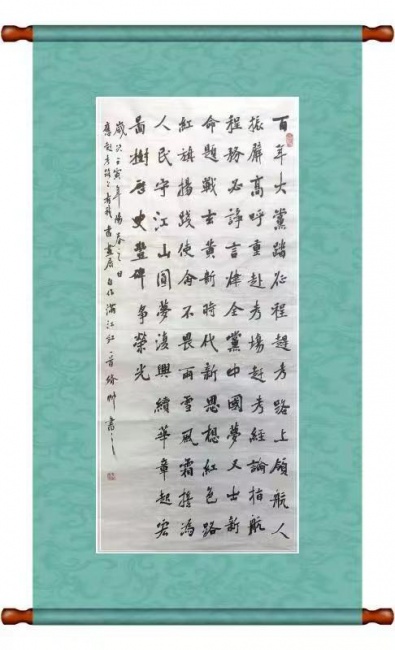 百年大黨踏征程趕考路上領航人
振臂高呼重赴考場赶考經論指航
程務必諍言律全黨中國夢又出新
命題戰士黄新時代新思想紅色路
紅旗揚踐使命不畏雨雪風霜為
人民守江山圓夢復興續華章起宏
啚樹歷史豐碑争榮光
歲次壬寅年陽春之日
應書畫屏自作滿江紅